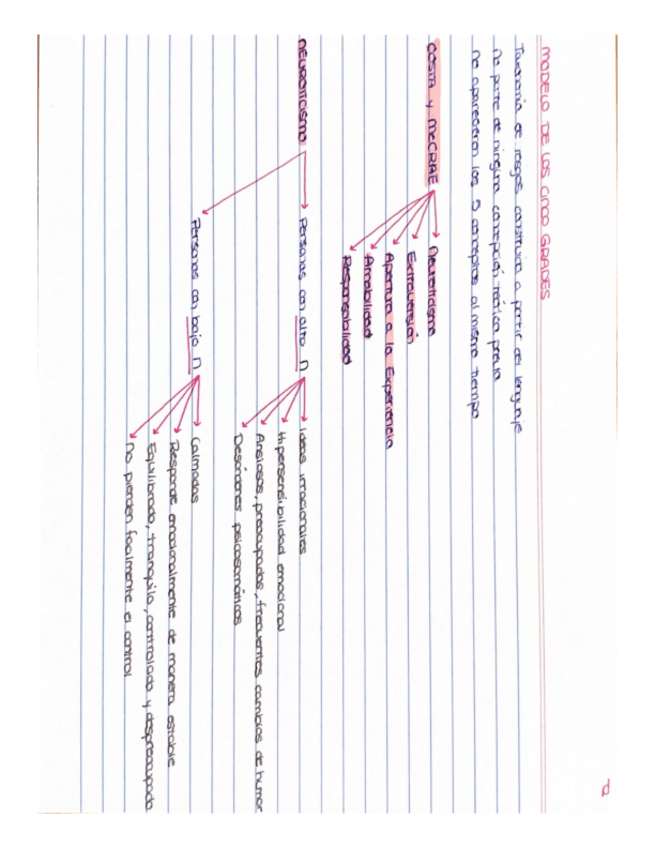 MODELO DE LOS CINCO GRADES
Taxonomía de rasgos construida a partir del lenguaje
No parte de ninguna concepción teórica previa
No aparecieron los 5 conceptos al mismo tiempo
COSTA y McCRAE
Neuroticismo
Extraversión
Apertura a la Experiencia
Amabilidad
Responsabilidad
NEUROTICISMO
Personas con alto N
Ideas irracionales
Hipersensibilidad emocional
Ansiosos, preocupados, frecuentes cambios de humor
Desórdenes psicosomáticos
Personas con bajo N
Calmadas
Responde emocionalmente de manera estable
Equilibrado, tranquilo, controlado y despreocupado
No pierden facilmente el control